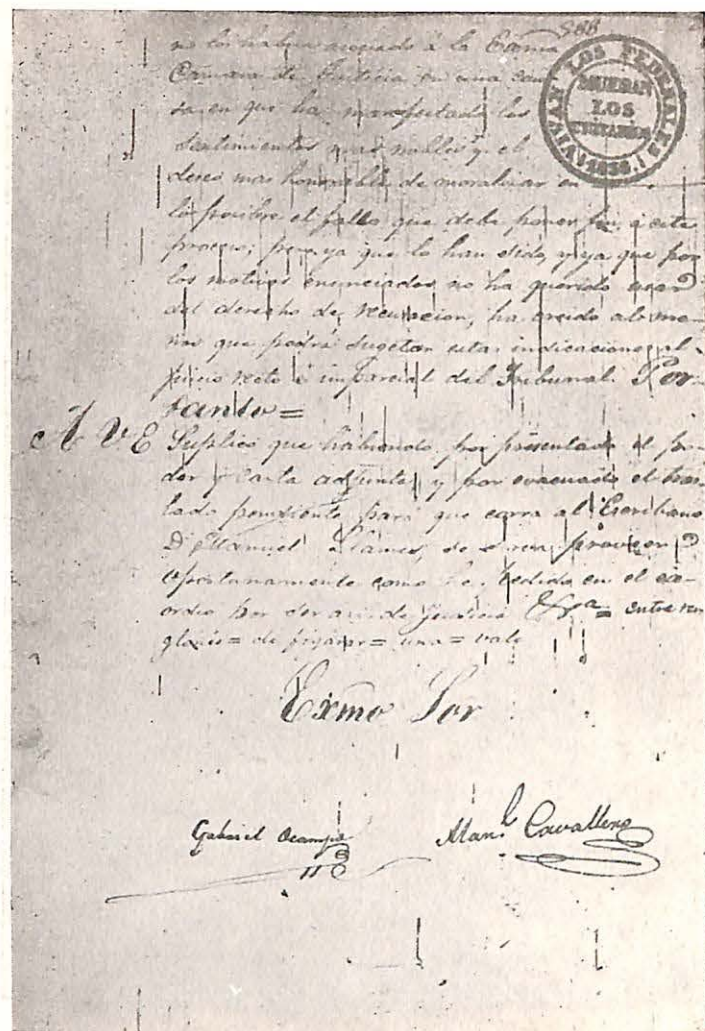 588
¡VIVAN LOS FEDERALES! 1836.
MUERAN
LOS
UNITARIOS
no los habria asociado á la Exma
Cámara de Justicia en una cau
sa en que ha manifestado los
sentimientos mas nobles y el
deseo mas honorable de moralizar en
lo posible el fallo que debe poner fin á este
proceso; pero ya que lo han sido, y ya que por
los motivos enunciados no ha querido usar
del derecho de recusacion, ha creido alome-
nos que podrá sugetar estas indicaciones al
juicio recto é imparcial del Tribunal. Por
tanto=
A V E Suplico que habiendo por presentado el po-
der y carta adjunta, y por evacuado el tras-
lado pendiente para que corra al Escribano
Dn Manuel se sirva proveer
oportunamente como he pedido en el ex-
ordio por ser asi de justicia = entre ren
glones = de = una = vale
Exmo Sor
Gabriel Ocampo
Manl Cavallero